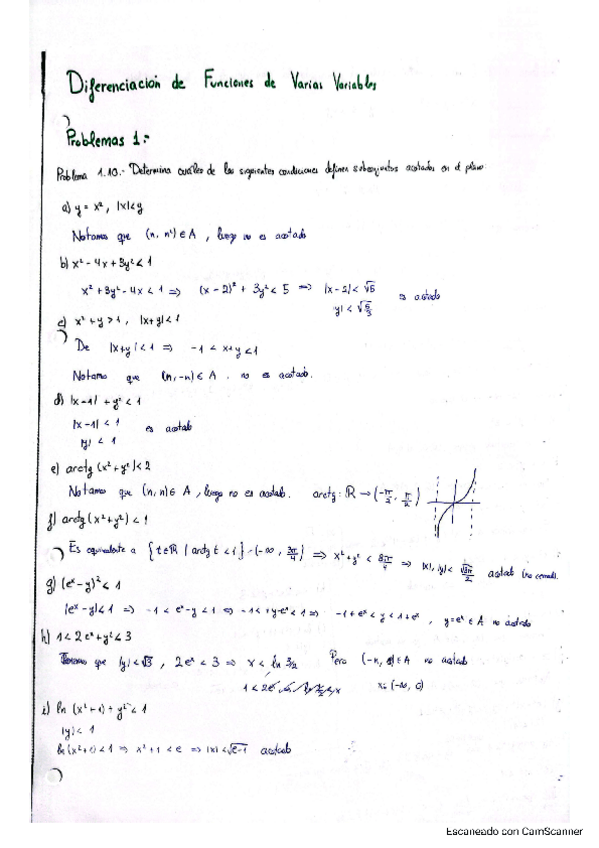 Diferenciación de Funciones de Varias Variables
Problemas 1:-
Problema 1.10.- Determina cuáles de las siguientes condiciones definen subconjuntos acotados en el plano
a) y = x², |x| < y
Notamos que (n, n²) ∈ A, luego no es acotado
b) x² - 4x + 3y² < 1
x² + 3y² - 4x < 1 ⇒ (x - 2)² + 3y² < 5 ⇒ |x - 2| < √5
|y| < √5/3 es acotado
c) x² + y > 1, |x+y| < 1
De |x+y| < 1 ⇒ -1 < x+y < 1
Notamo que (n, -n) ∈ A . no es acotado.
d) |x - 1| + y² < 1
|x - 1| < 1
|y| < 1 es acotado
e) arctg (x² + y²) < 2
Notamos que (n, n) ∈ A, luego no es acotado. arctg: ℝ → (-π/2, π/2)
f) arctg (x² + y²) < 1
Es equivalente a {t ∈ ℝ | arctg t < 1} = (-∞, 3π/4) ⇒ x² + y² < ⇒ |x|, |y| < acotado (no cerrado).
g) (eˣ - y)² < 1
|eˣ - y| < 1 ⇒ -1 < eˣ - y < 1 ⇒ -1 < y - eˣ < 1 ⇒ -1 + eˣ < y < 1 + eˣ, y = eˣ ∈ A no acotado
h) 1 < 2eˣ + y² < 3
Tenemos que |y| < √3, 2eˣ < 3 ⇒ x < ln 3/2 Pero ∈ A no acotado
1 < 2eˣ (-∞, 0)
i) ln (x² + 1) + y² < 1
|y| < 1
ln (x² + 1) < 1 ⇒ x² + 1 < e ⇒ |x| < √e-1 acotado
Escaneado con CamScanner